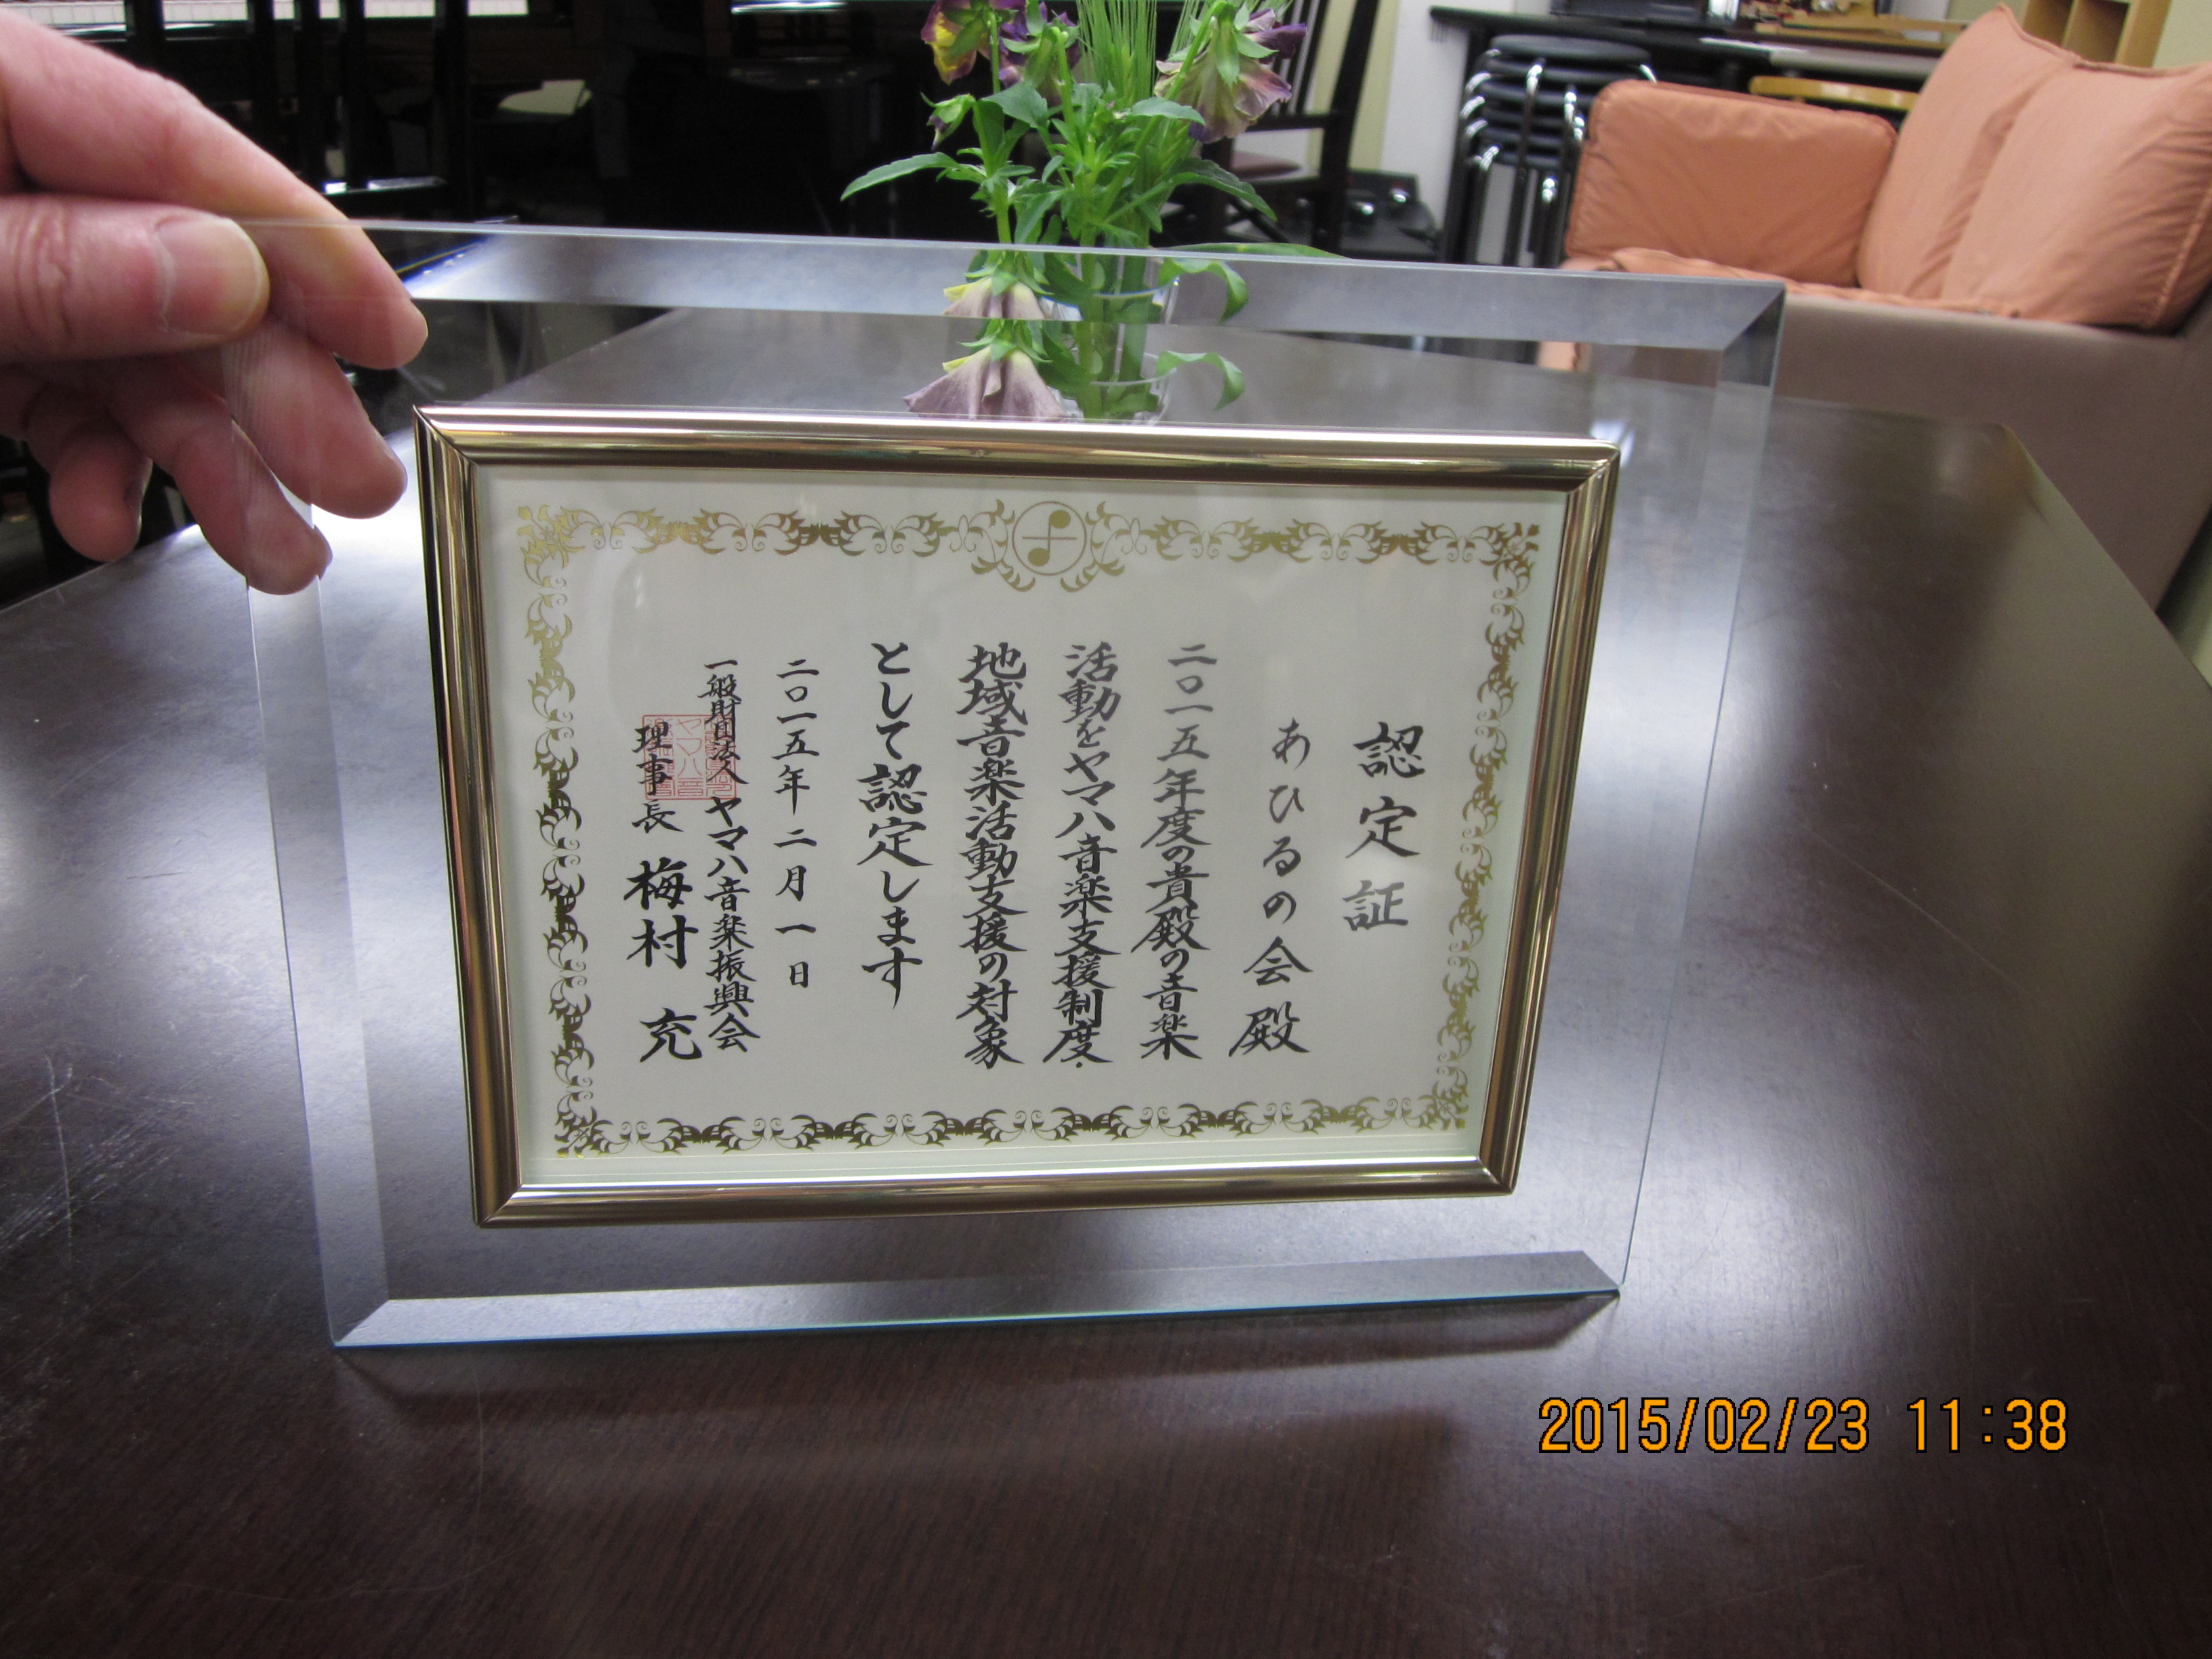 認定証
あひるの会 殿
二〇一五年度の貴殿の音楽
活動をヤマハ音楽支援制度・
地域音楽活動支援の対象
として認定します
二〇一五年二月一日
一般財団法人 ヤマハ音楽振興会
理事長 梅村 充
2015/02/23 11:38